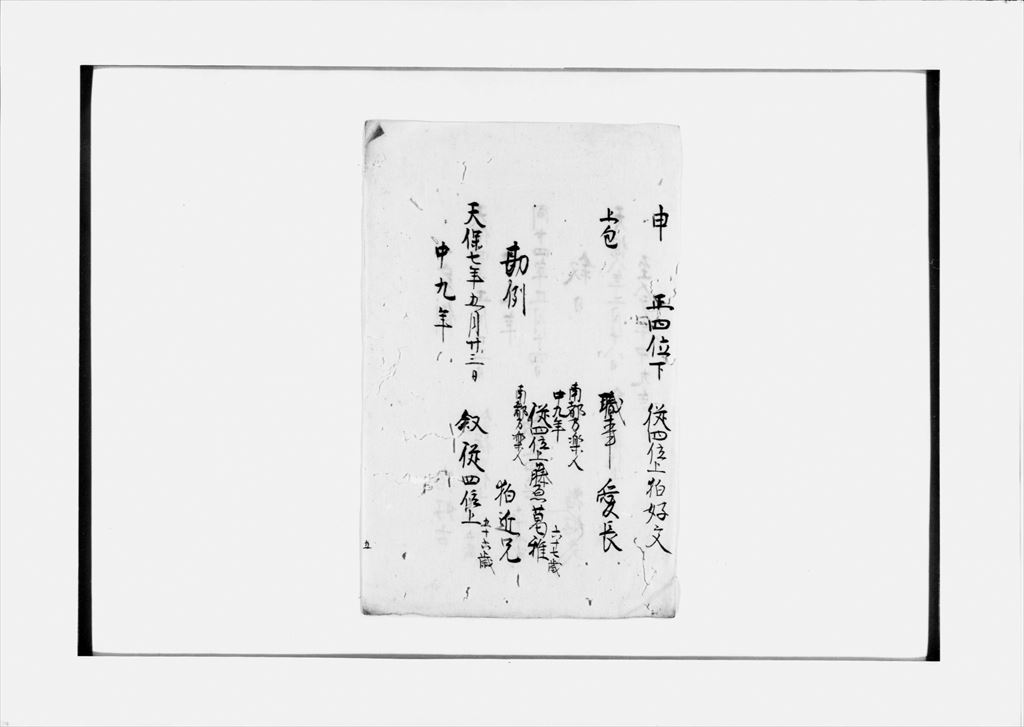 申 正四位下 従四位上狛好文
上包 職事 愛長
南都方楽人
中九年
従四位上藤原葛雅 六十七歳
勘例
南都方楽人
狛近兄 五十六歳
天保七年五月廿三日 叙従四位上
中九年
五